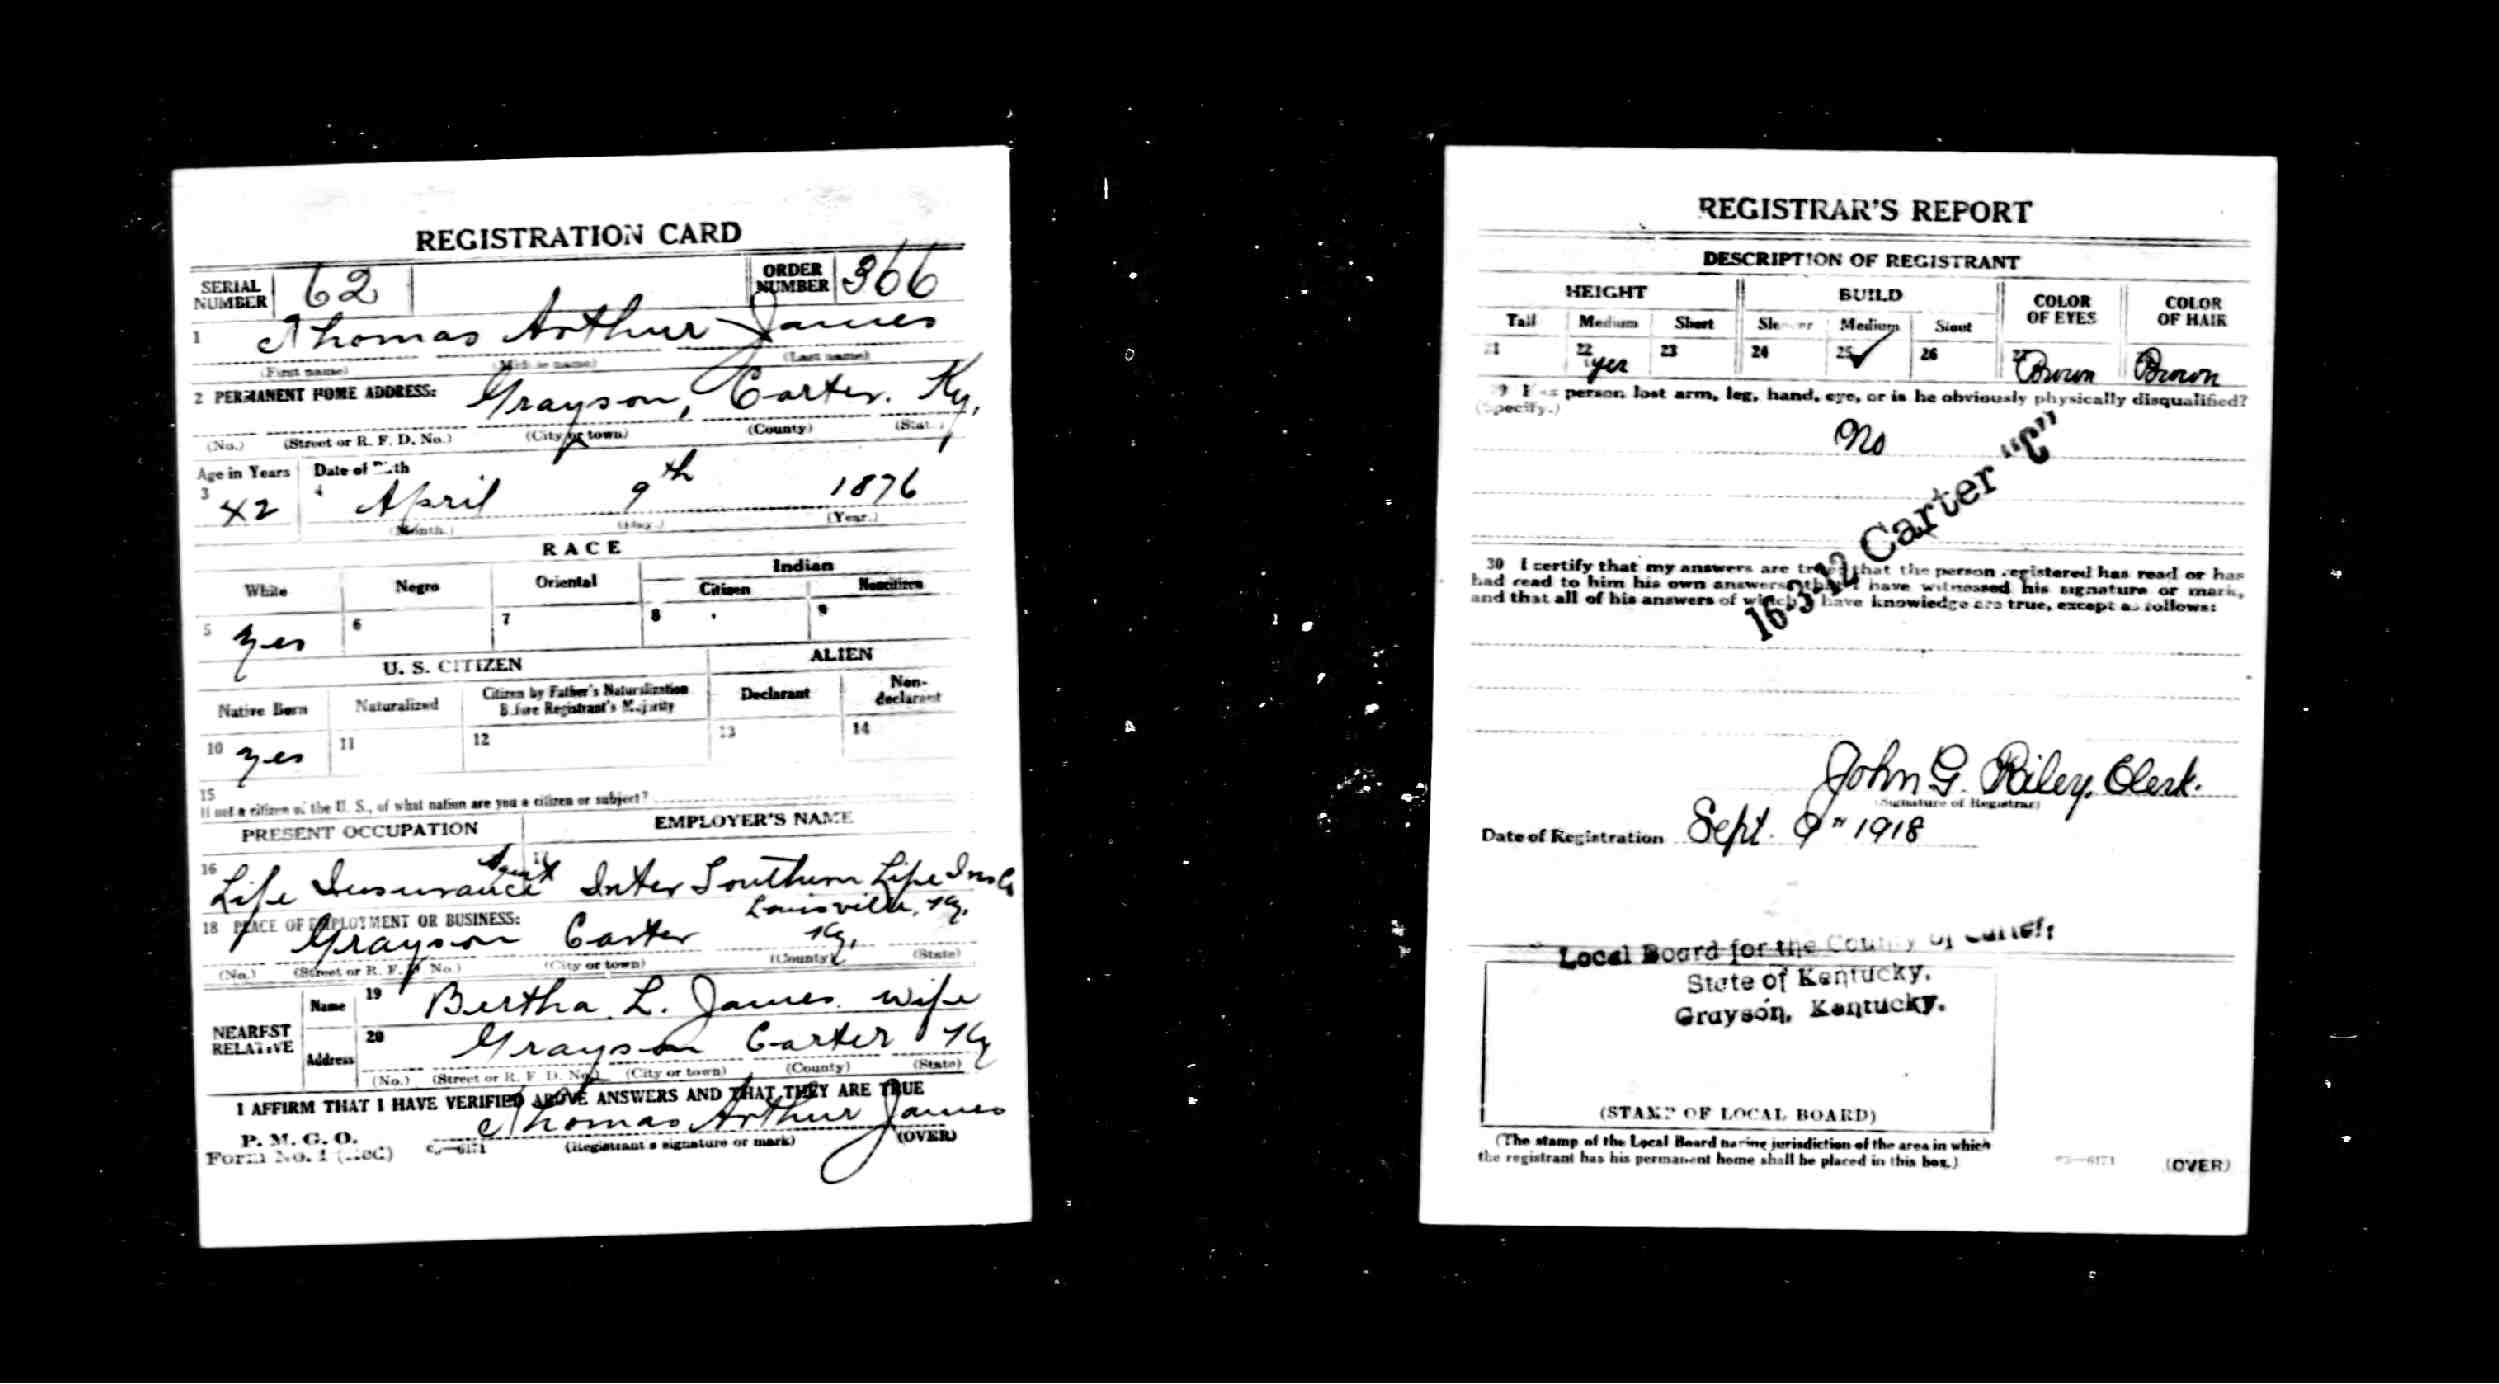 REGISTRATION CARD
SERIAL NUMBER 62 ORDER NUMBER 366
1 Thomas Arthur James
(First name) (Middle name) (Last name)
2 PERMANENT HOME ADDRESS: Grayson, Carter. Ky,
(No.) (Street or R. F. D. No.) (City or town) (County) (State)
Age in Years Date of Birth
3 42 4 April 9th 1876
(Month.) (Day.) (Year.)
RACE
White Negro Oriental Indian
Citizen Noncitizen
5 Yes 6 7 8 9
U. S. CITIZEN ALIEN
Native Born Naturalized Citizen by Father's Naturalization Before Registrant's Majority Declarant Non-declarant
10 Yes 11 12 13 14
15
If not a citizen of the U. S., of what nation are you a citizen or subject?
PRESENT OCCUPATION EMPLOYER'S NAME
16 Life Insurance Agent 17 Inter Southern Life Ins Co
Louisville, Ky.
18 PLACE OF EMPLOYMENT OR BUSINESS:
Grayson Carter Ky,
(No.) (Street or R. F. D. No.) (City or town) (County) (State)
NEAREST RELATIVE
Name 19 Bertha L. James. wife
Address 20 Grayson Carter Ky
(No.) (Street or R. F. D. No.) (City or town) (County) (State)
I AFFIRM THAT I HAVE VERIFIED ABOVE ANSWERS AND THAT THEY ARE TRUE
Thomas Arthur James
P. M. G. O.
Form No. 1 (Red) (Registrant's signature or mark) (OVER)
REGISTRAR'S REPORT
DESCRIPTION OF REGISTRANT
HEIGHT BUILD COLOR OF EYES COLOR OF HAIR
Tall Medium Short Slender Medium Stout
21 22 yes 23 24 25 ✓ 26 27 Brown Brown
29 Has person lost arm, leg, hand, eye, or is he obviously physically disqualified?
(Specify.)
No
16-3-12 Carter "C"
30 I certify that my answers are true; that the person registered has read or has
had read to him his own answers; that I have witnessed his signature or mark,
and that all of his answers of which I have knowledge are true, except as follows:
John G. Riley, Clerk.
(Signature of Registrar)
Date of Registration Sept. 9" 1918
Local Board for the County of Carter,
State of Kentucky,
Grayson, Kentucky.
(STAMP OF LOCAL BOARD)
(The stamp of the Local Board having jurisdiction of the area in which
the registrant has his permanent home shall be placed in this box.)
03—6171 (OVER)